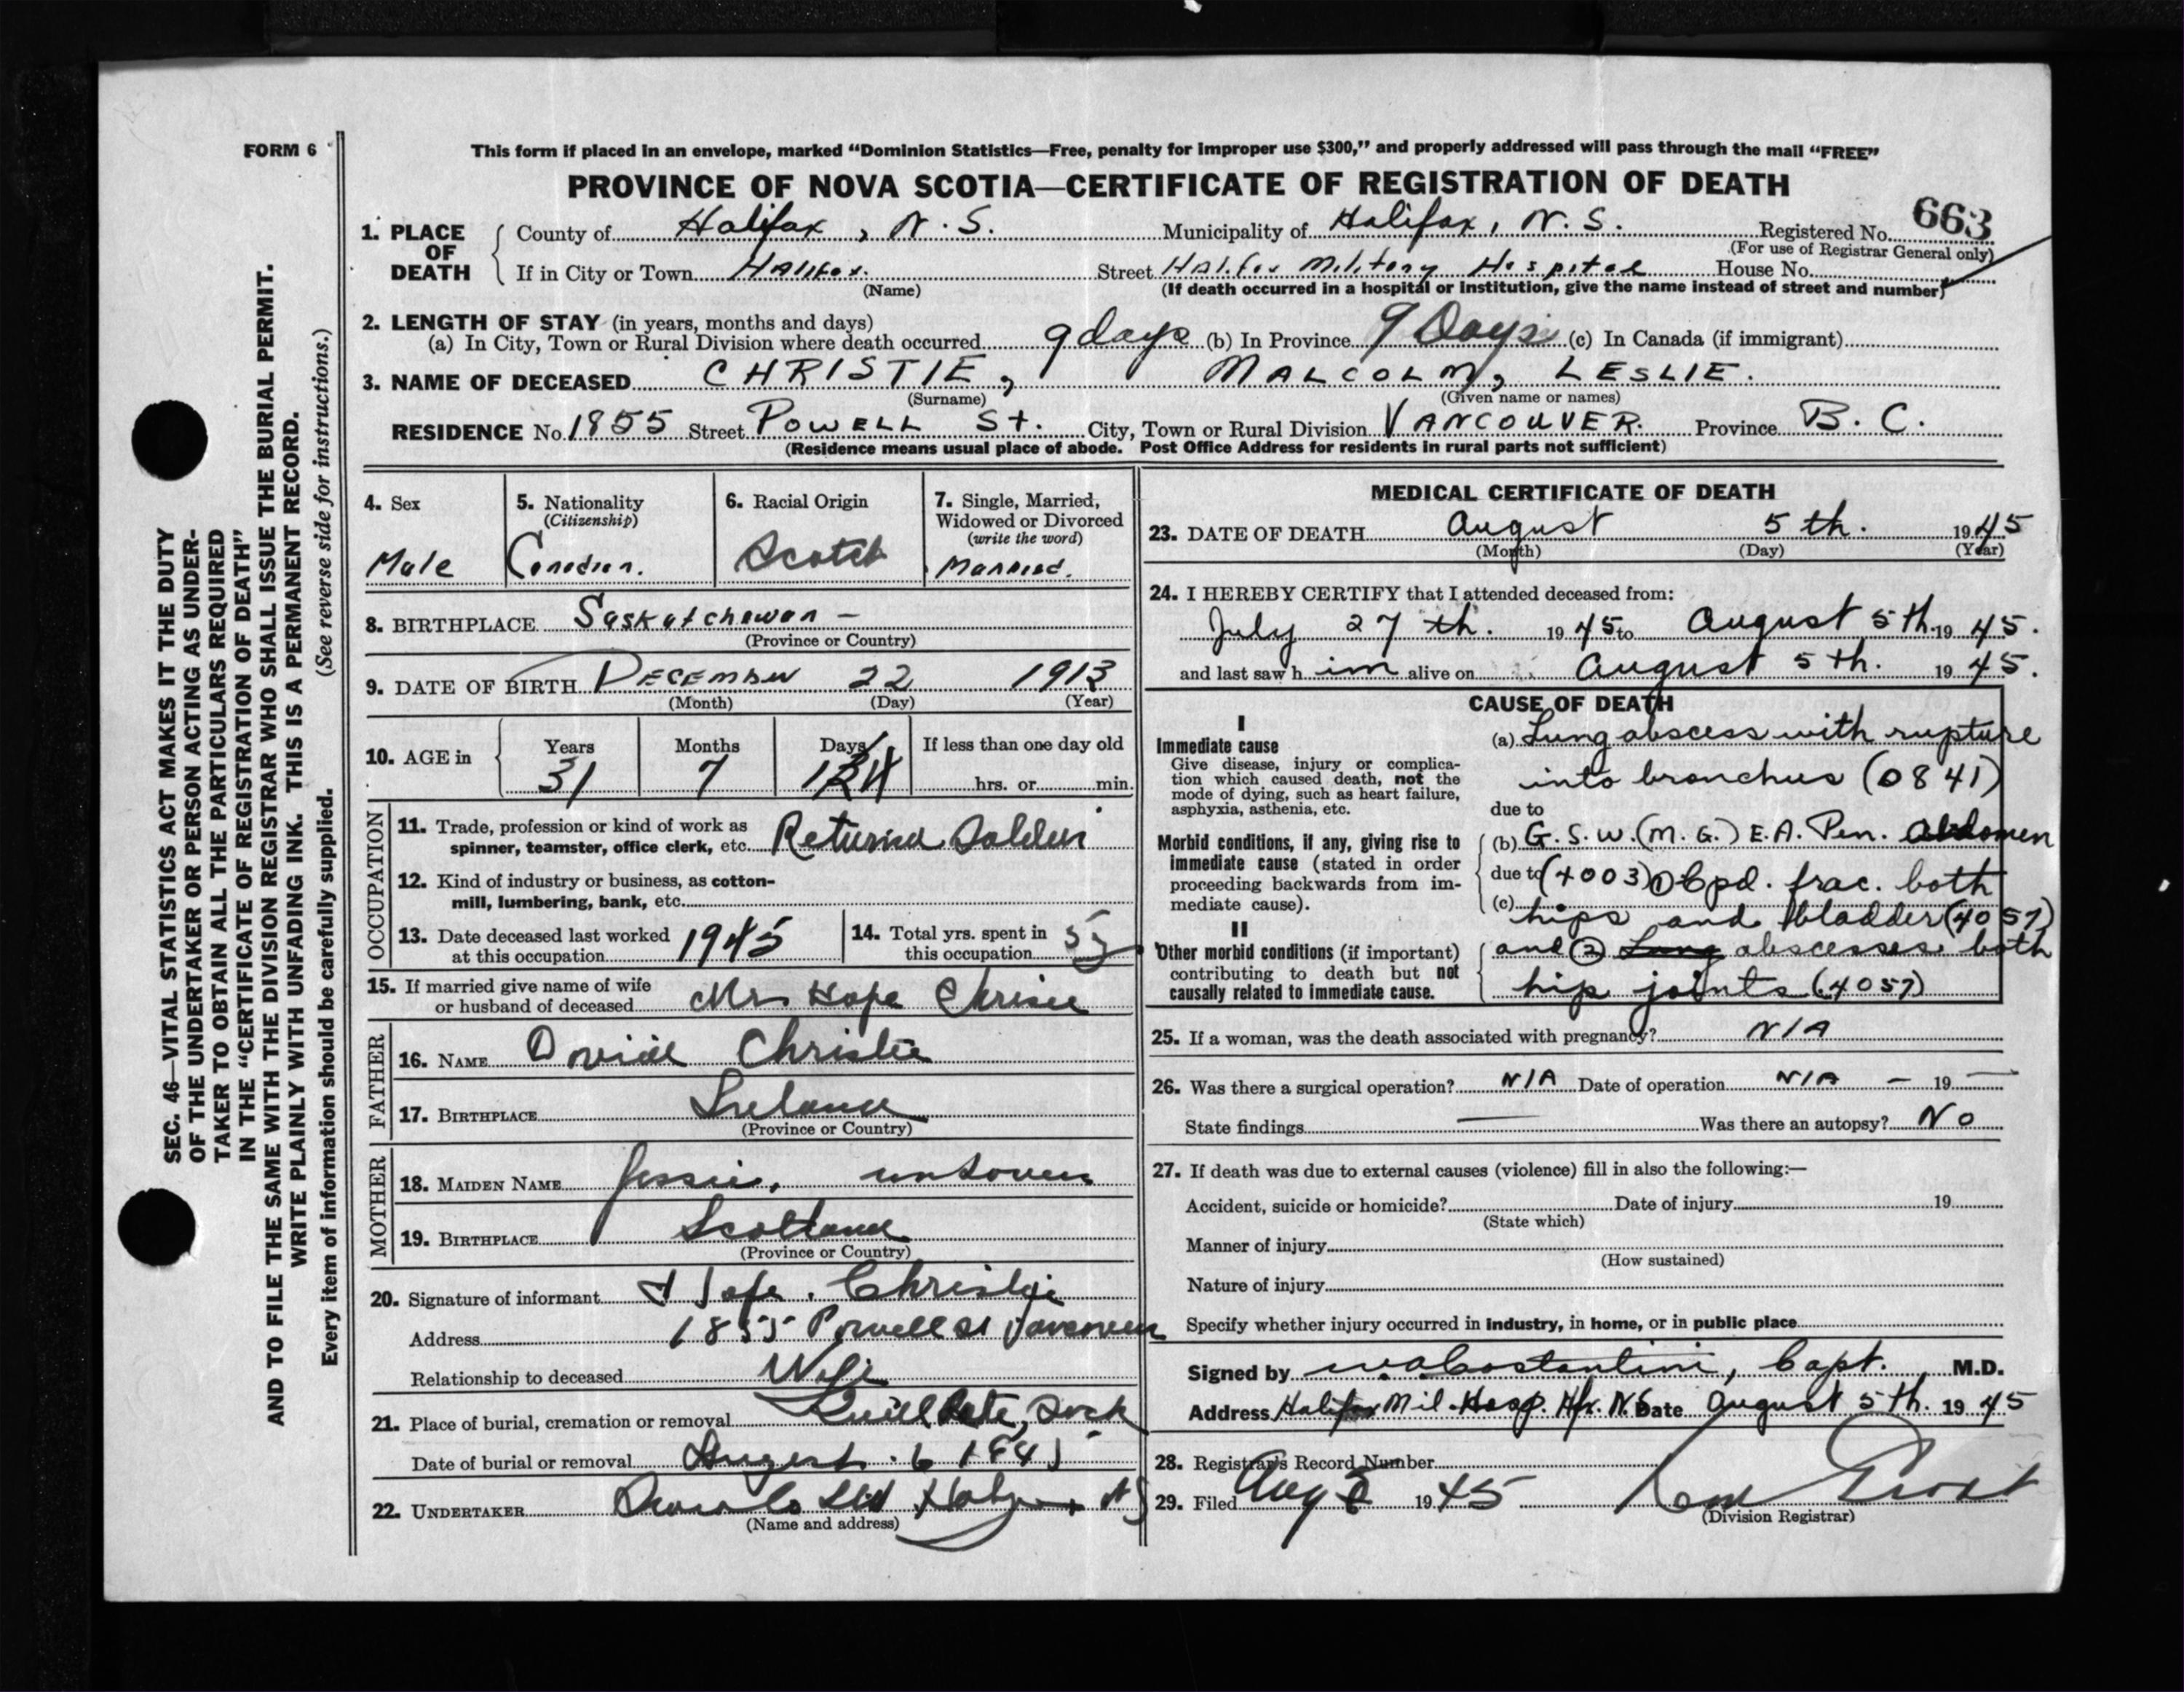 FORM 6
This form if placed in an envelope, marked “Dominion Statistics—Free, penalty for improper use $300,” and properly addressed will pass through the mail “FREE”
PROVINCE OF NOVA SCOTIA—CERTIFICATE OF REGISTRATION OF DEATH
663
1. PLACE OF DEATH County of Halifax, N.S. Municipality of Halifax, N.S. Registered No.
(For use of Registrar General only)
If in City or Town Halifax. Street Halifax Military Hospital House No.
(Name) (If death occurred in a hospital or institution, give the name instead of street and number)
2. LENGTH OF STAY (in years, months and days)
(a) In City, Town or Rural Division where death occurred 9 days (b) In Province 9 Days (c) In Canada (if immigrant)
3. NAME OF DECEASED CHRISTIE, MALCOLM, LESLIE.
(Surname) (Given name or names)
RESIDENCE No. 1855 Street POWELL St. City, Town or Rural Division VANCOUVER. Province B.C.
(Residence means usual place of abode. Post Office Address for residents in rural parts not sufficient)
4. Sex
Male
5. Nationality
(Citizenship)
Canadian.
6. Racial Origin
Scotch
7. Single, Married,
Widowed or Divorced
(write the word)
Married.
8. BIRTHPLACE Saskatchewan —
(Province or Country)
9. DATE OF BIRTH DECEMBER 22 1913
(Month) (Day) (Year)
10. AGE in Years Months Days If less than one day old
31 7 hrs. or min.
OCCUPATION
11. Trade, profession or kind of work as
spinner, teamster, office clerk, etc.
12. Kind of industry or business, as cotton-
mill, lumbering, bank, etc.
13. Date deceased last worked
at this occupation 1945
14. Total yrs. spent in
this occupation
15. If married give name of wife
or husband of deceased Mrs Hope
FATHER
16. NAME Christie
17. BIRTHPLACE Ireland
(Province or Country)
MOTHER
18. MAIDEN NAME Jessie,
19. BIRTHPLACE Scotland
(Province or Country)
20. Signature of informant Hope. Christie
Address 1855 Powell St Vancouver
Relationship to deceased Wife
21. Place of burial, cremation or removal
Date of burial or removal August 6
22. UNDERTAKER
(Name and address)
MEDICAL CERTIFICATE OF DEATH
23. DATE OF DEATH August 5th. 1945
(Month) (Day) (Year)
24. I HEREBY CERTIFY that I attended deceased from:
July 27th. 1945 to August 5th. 1945.
and last saw him alive on August 5th. 1945.
CAUSE OF DEATH
I
Immediate cause
Give disease, injury or complica-
tion which caused death, not the
mode of dying, such as heart failure,
asphyxia, asthenia, etc.
(a) Lung abscess with rupture
into bronchus (0841)
due to
Morbid conditions, if any, giving rise to
immediate cause (stated in order
proceeding backwards from im-
mediate cause).
(b) G.S.W. (M.G.) E.A. Pen. Abdomen
due to (4003) ① Cpd. frac. both
(c) hips and bladder (4057)
II
Other morbid conditions (if important)
contributing to death but not
causally related to immediate cause.
and ② Lung abscesses both
hip joints (4057)
25. If a woman, was the death associated with pregnancy? N/A
26. Was there a surgical operation? N/A Date of operation N/A — 19 —
State findings — Was there an autopsy? No
27. If death was due to external causes (violence) fill in also the following:—
Accident, suicide or homicide? Date of injury 19
(State which)
Manner of injury
(How sustained)
Nature of injury
Specify whether injury occurred in industry, in home, or in public place
Signed by Costantini, Capt. M.D.
Address Halifax Mil. Hosp. Hfx. N.S. Date August 5th. 1945
28. Registrar's Record Number
29. Filed Aug 1945
(Division Registrar)
SEC. 46—VITAL STATISTICS ACT MAKES IT THE DUTY
OF THE UNDERTAKER OR PERSON ACTING AS UNDER-
TAKER TO OBTAIN ALL THE PARTICULARS REQUIRED
IN THE “CERTIFICATE OF REGISTRATION OF DEATH”
AND TO FILE THE SAME WITH THE DIVISION REGISTRAR WHO SHALL ISSUE THE BURIAL PERMIT.
WRITE PLAINLY WITH UNFADING INK. THIS IS A PERMANENT RECORD.
Every item of information should be carefully supplied. (See reverse side for instructions.)